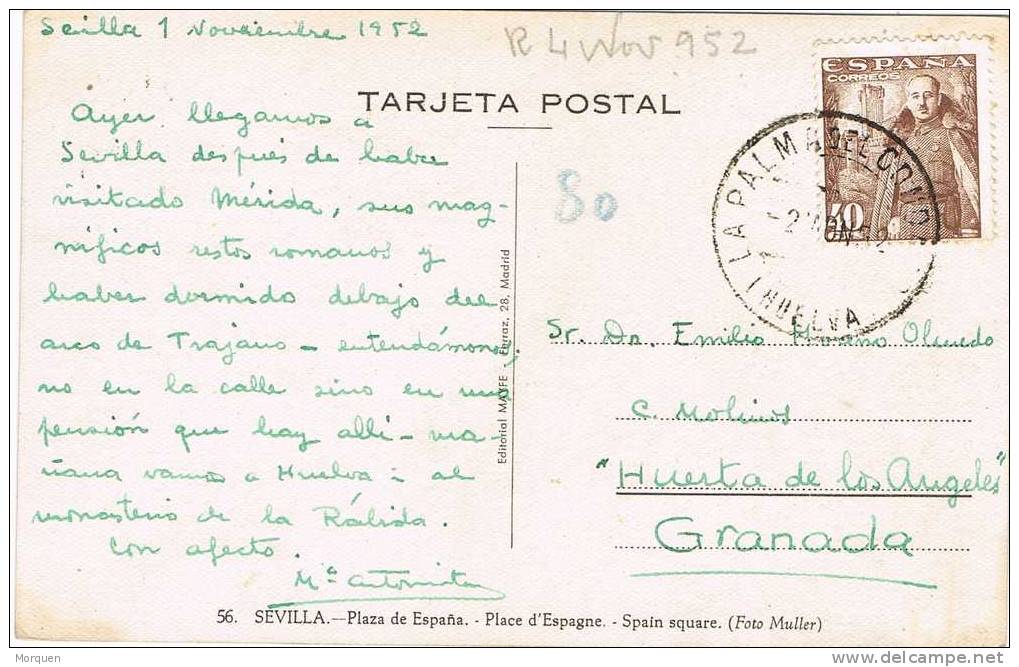 Sevilla 1 Noviembre 1952
R 4 Nov 952
TARJETA POSTAL
ESPAÑA
CORREOS
40
LA PALMA DEL CONDADO
2 NOV 52
(HUELVA
80
Ayer llegamos a
Sevilla después de haber
visitado Mérida, sus mag-
níficos restos romanos y
haber dormido debajo del
arco de Trajano - entendámonos,
no en la calle sino en una
pensión que hay allí - ma-
ñana vamos a Huelva: al
monasterio de la Rábida.
Con afecto.
Mª Antonieta
Editorial MAYFE - Ferraz, 28, Madrid
Sr. Dn. Emilio Moreno Olmedo
C. Molinos
"Huerta de los Angeles"
Granada
56. SEVILLA.—Plaza de España. - Place d'Espagne. - Spain square. (Foto Muller)
Morquen
www.delcampe.net